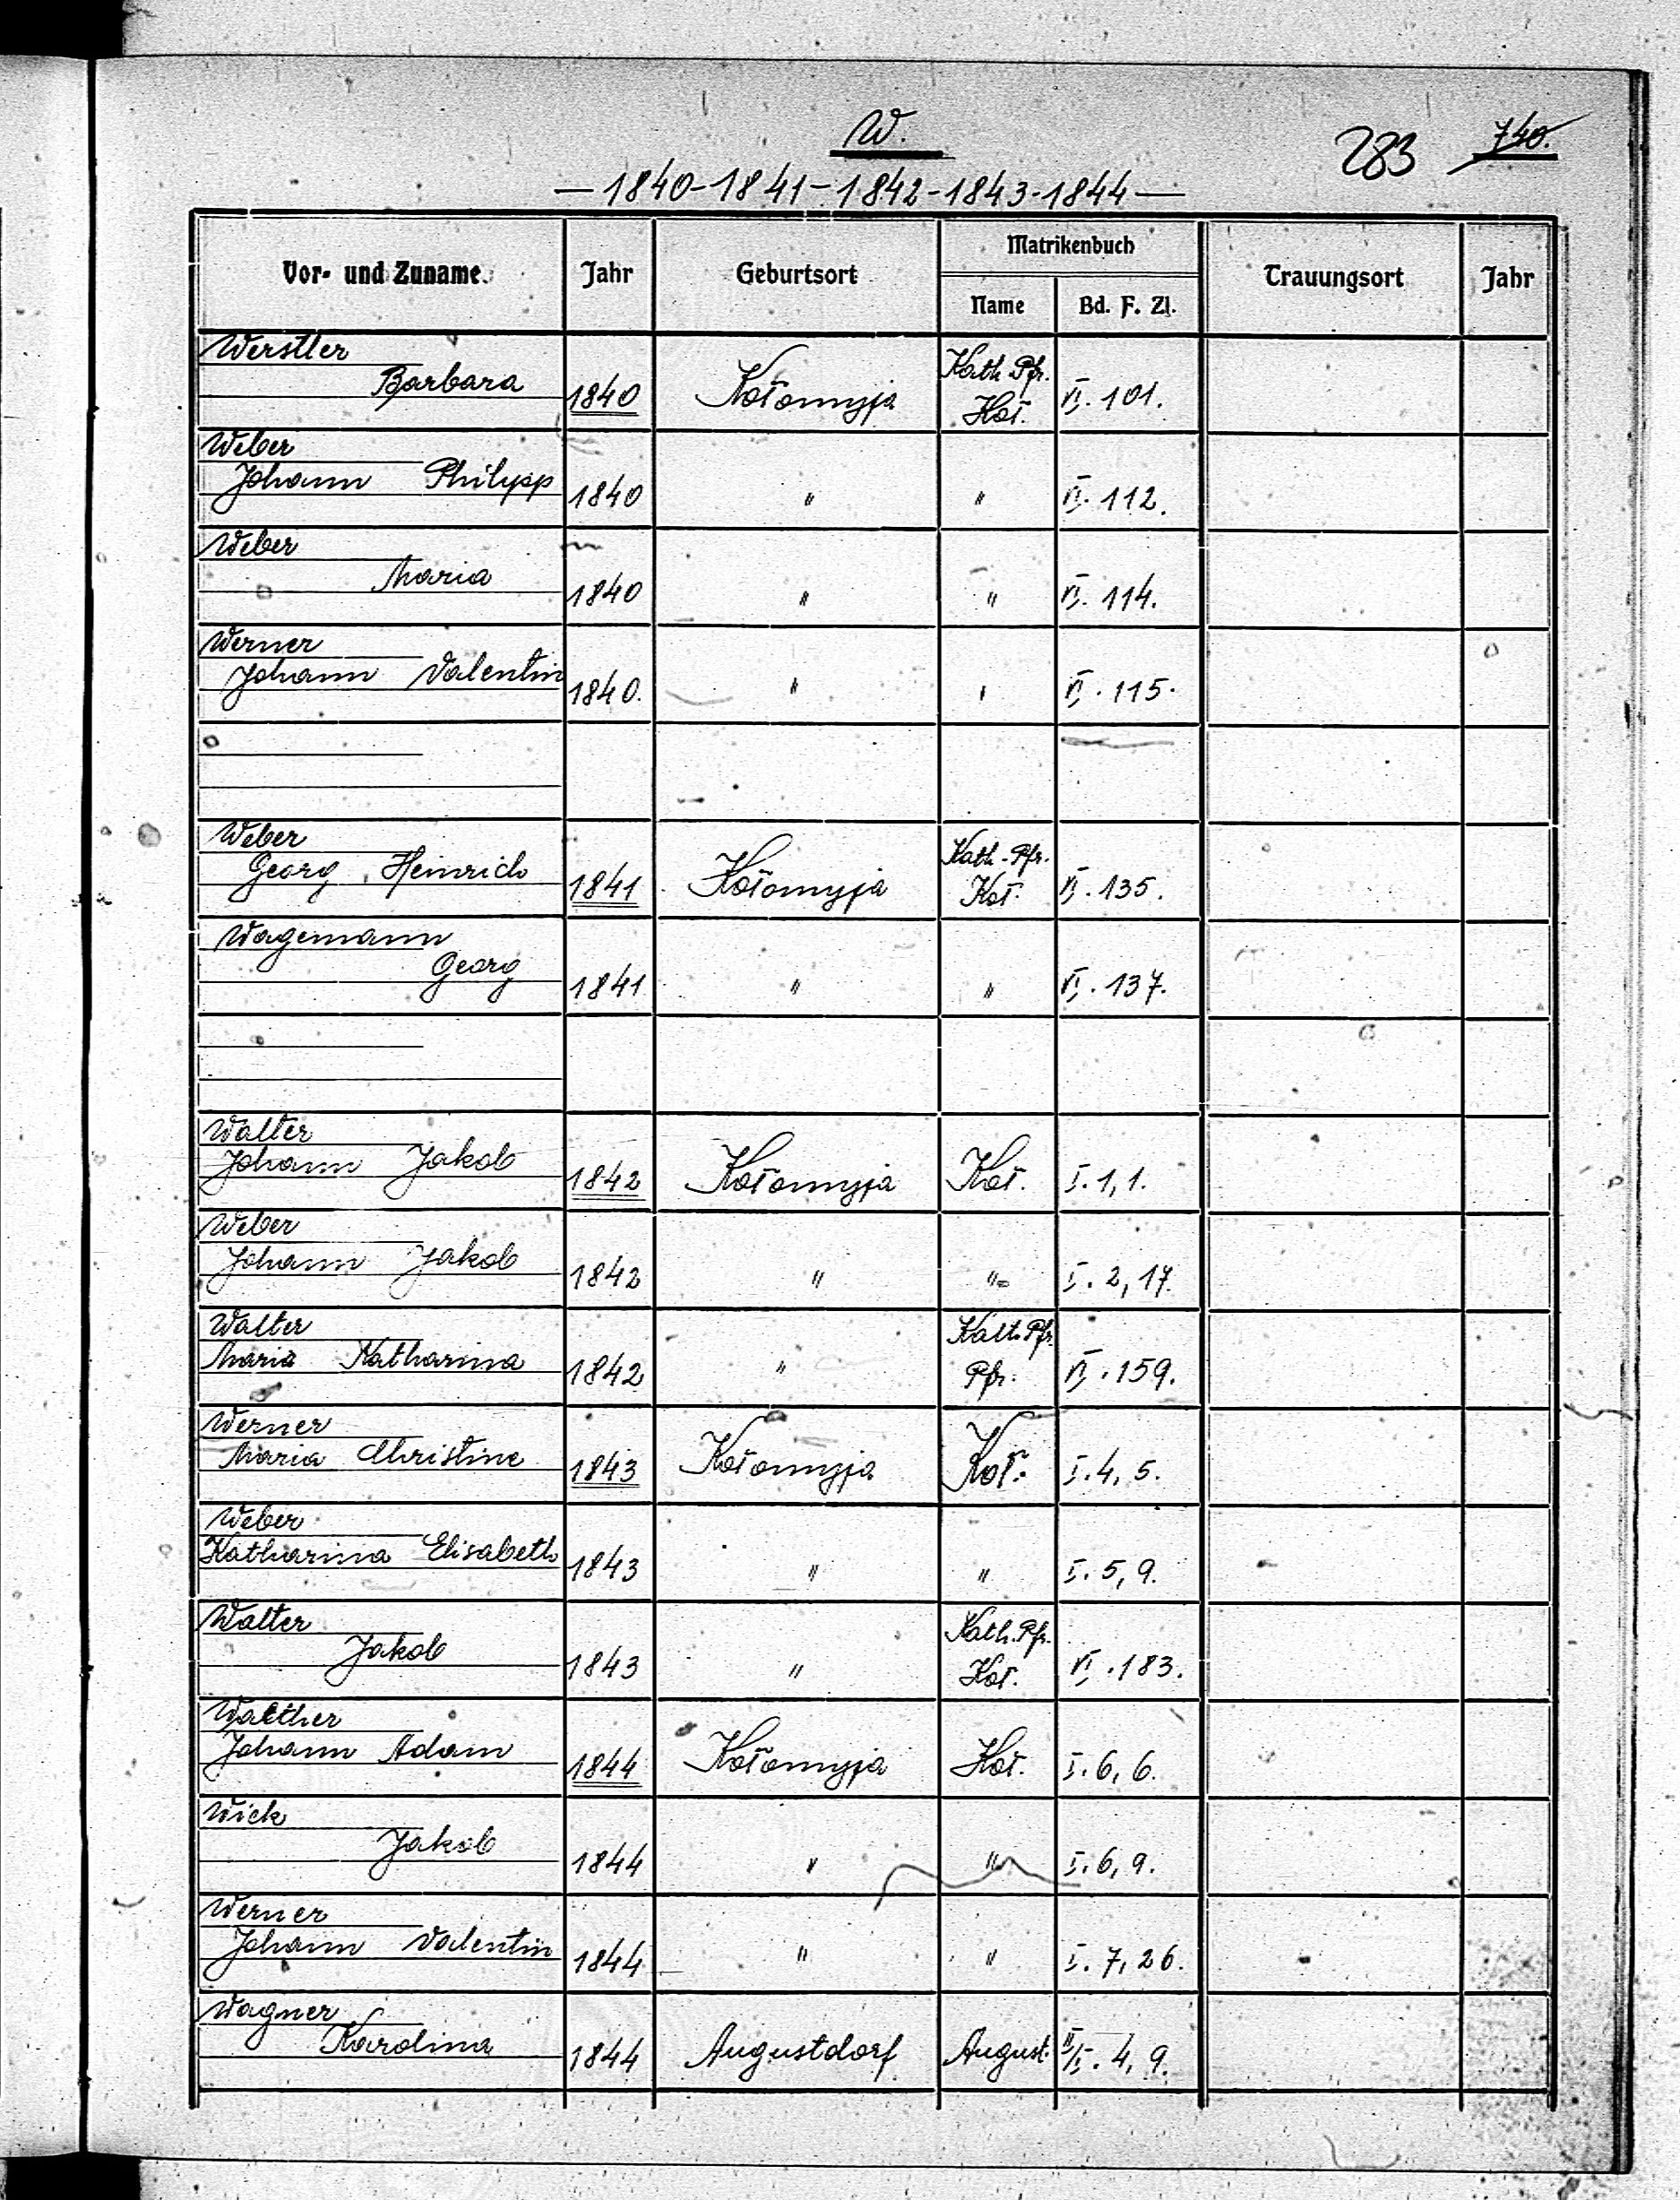 W.
283 740.
— 1840-1841-1842-1843-1844 —
Vor- und Zuname. Jahr Geburtsort Matrikenbuch Trauungsort Jahr
Name Bd. F. Zl.
Werstler
Barbara 1840 Kołomyja Kath. Pfr. Koł. VI. 101.
Weber
Johann Philipp 1840 " " VI. 112.
Weber
Maria 1840 " " VI. 114.
Werner
Johann Valentin 1840. " " VI. 115.
Weber
Georg Heinrich 1841 Kołomyja Kath. Pfr. Koł. VI. 135.
Wagemann
Georg 1841 " " VI. 137.
Walter
Johann Jakob 1842 Kołomyja Koł. I. 1, 1.
Weber
Johann Jakob 1842 " " I. 2, 17.
Walter
Maria Katharina 1842 " Kath. Pfr. Pfr. VI. 159.
Werner
Maria Christine 1843 Kołomyja Koł. I. 4, 5.
Weber
Katharina Elisabeth 1843 " " I. 5, 9.
Walter
Jakob 1843 " Kath. Pfr. Koł. VI. 183.
Walther
Johann Adam 1844 Kołomyja Koł. I. 6, 6.
Wick
Jakob 1844 " " I. 6, 9.
Werner
Johann Valentin 1844 " " I. 7, 26.
Wagner
Karolina 1844 Augustdorf August. II/I. 4, 9.